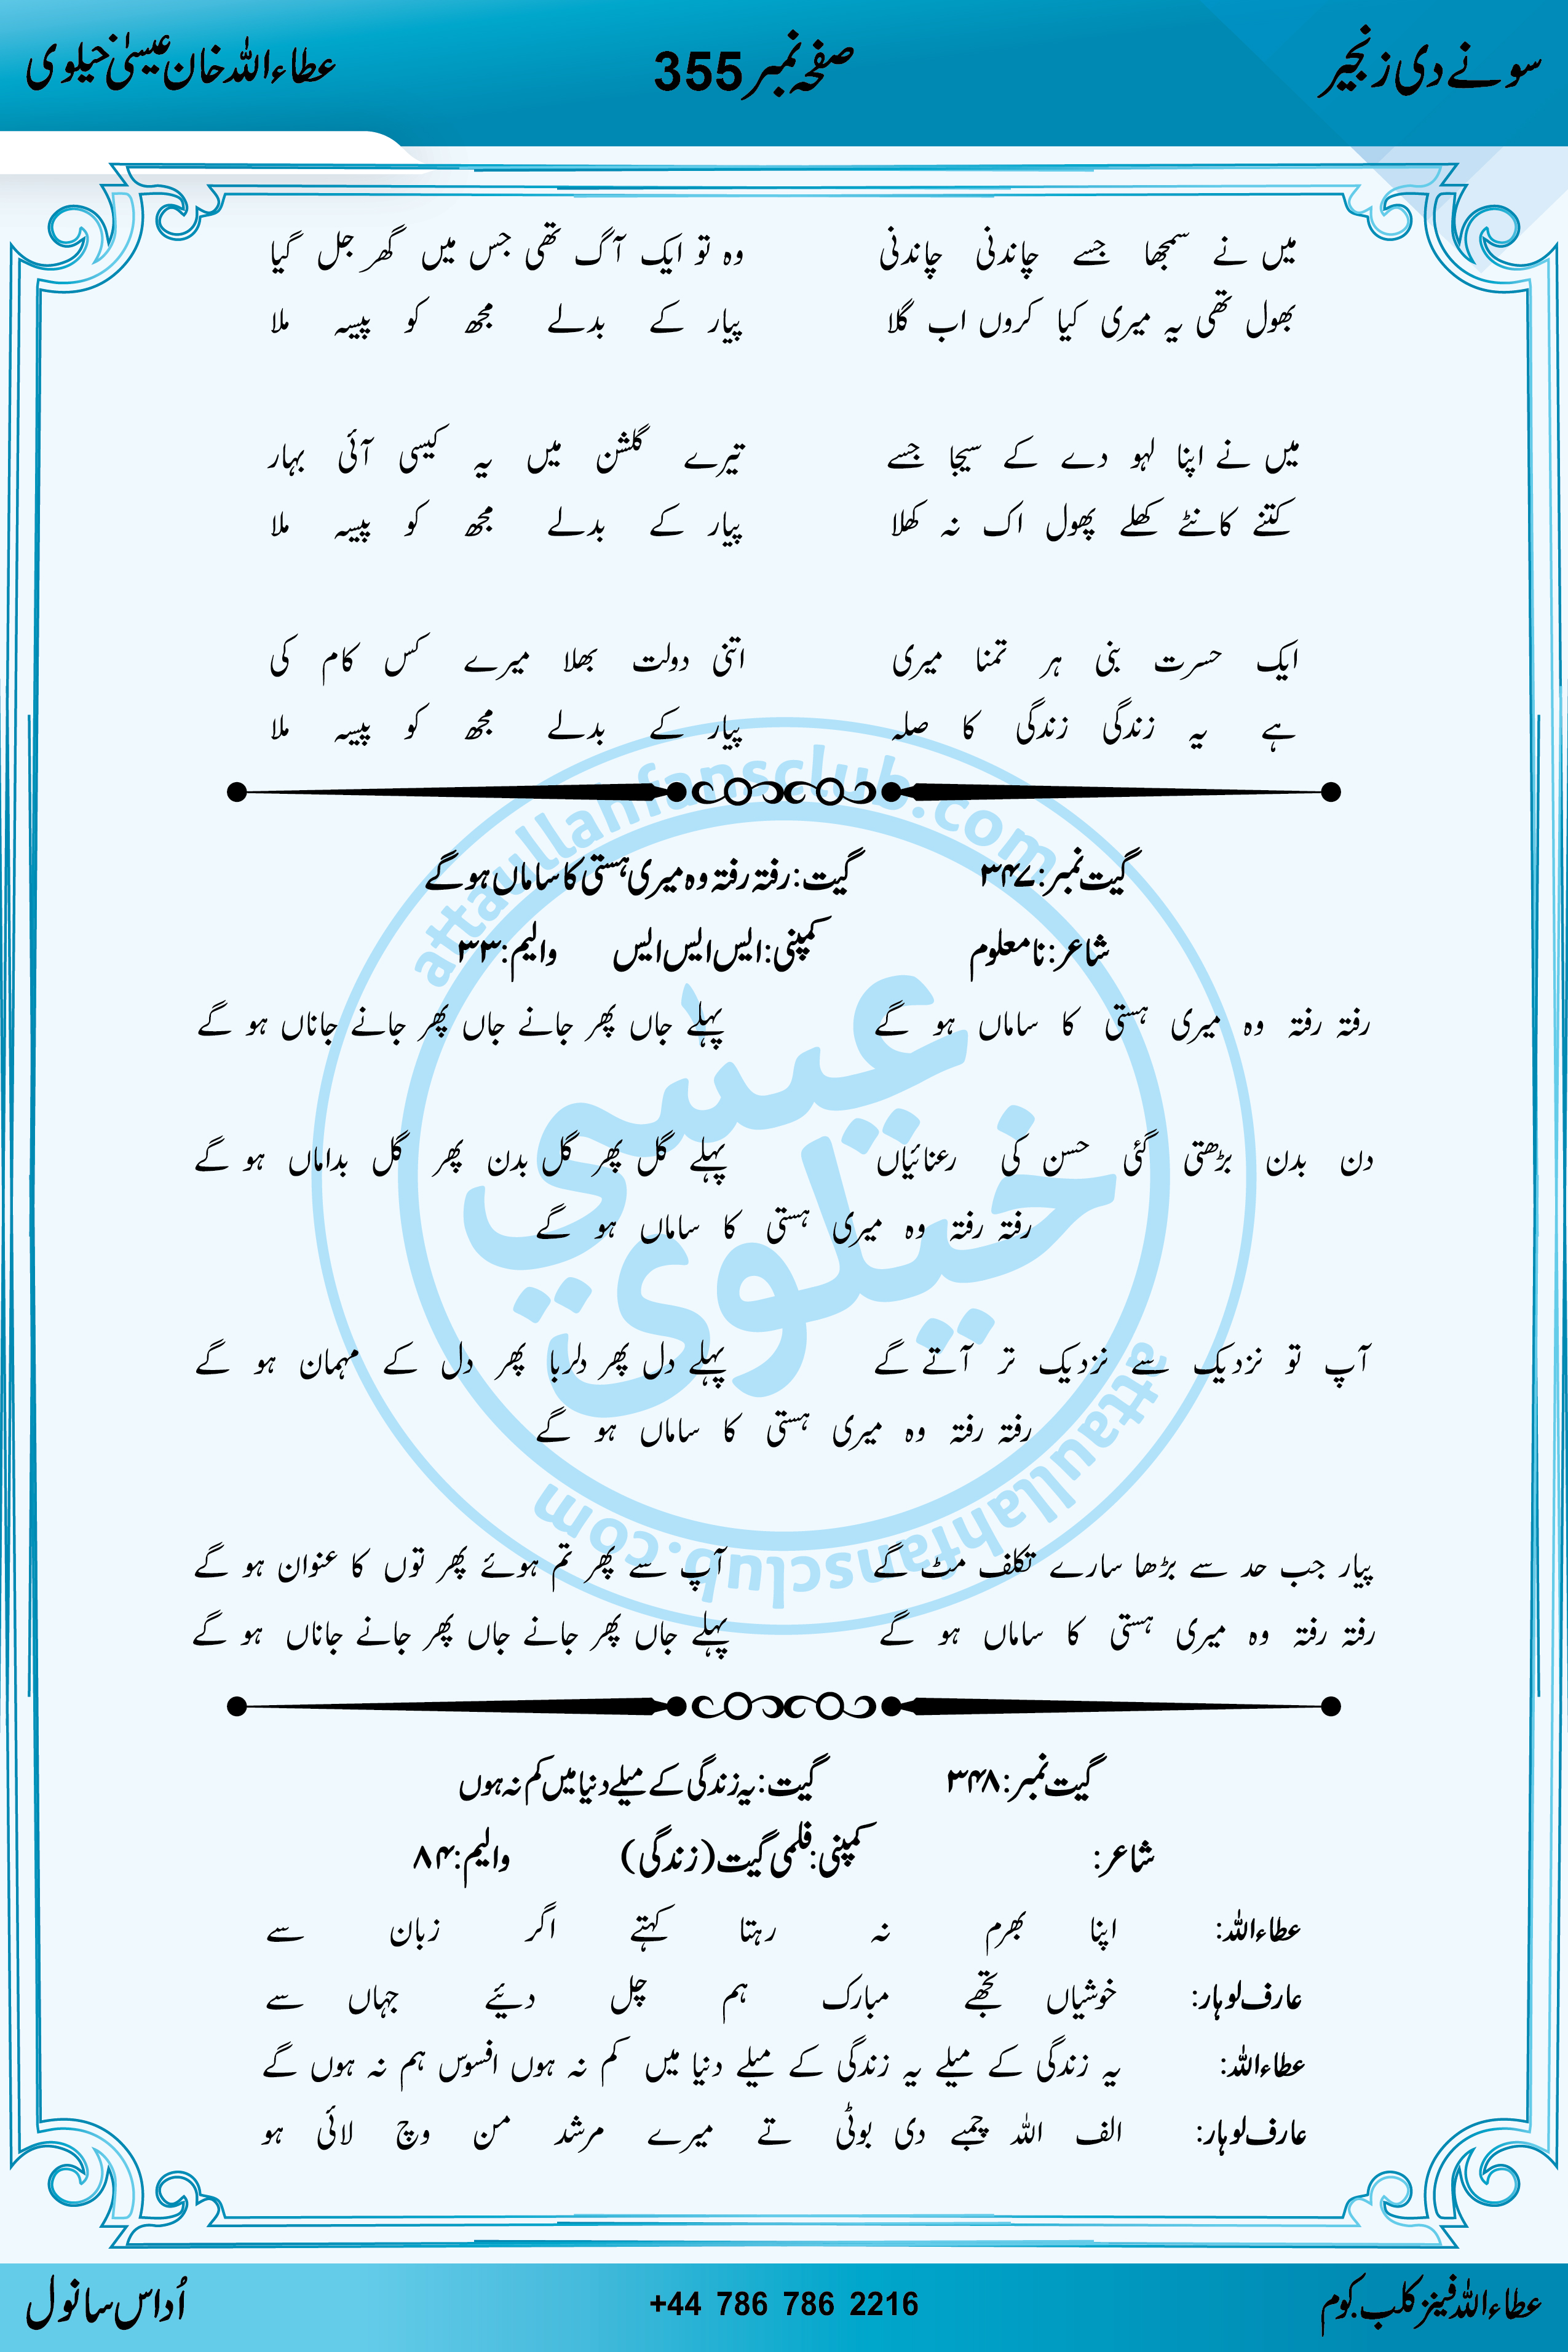 سونے دی زنجیر صفحہ نمبر 355 عطاء اللہ خان عیسیٰ خیلوی
میں نے سمجھا جسے چاندنی چاندنی وہ تو ایک آگ تھی جس میں گھر جل گیا
بھول تھی یہ میری کیا کروں اب گلا پیار کے بدلے مجھ کو پیسہ ملا
میں نے اپنا لہو دے کے سیجا جسے تیرے گلشن میں یہ کیسی آئی بہار
کتنے کانٹے کھلے پھول اک نہ کھلا پیار کے بدلے مجھ کو پیسہ ملا
ایک حسرت بنی ہر تمنا میری اتنی دولت بھلا میرے کس کام کی
ہے یہ زندگی زندگی کا صلہ پیار کے بدلے مجھ کو پیسہ ملا
گیت نمبر: ۳۴۷ گیت: رفتہ رفتہ وہ میری ہستی کا ساماں ہو گے
شاعر: نامعلوم کمپنی: ایس ایس ایس والیم: ۳۳
رفتہ رفتہ وہ میری ہستی کا ساماں ہو گے پہلے جاں پھر جانے جاں پھر جانے جاناں ہو گے
دن بدن بڑھتی گئی حسن کی رعنائیاں پہلے گل پھر گل بدن پھر گل بداماں ہو گے
رفتہ رفتہ وہ میری ہستی کا ساماں ہو گے
آپ تو نزدیک سے نزدیک تر آتے گے پہلے دل پھر دلربا پھر دل کے مہمان ہو گے
رفتہ رفتہ وہ میری ہستی کا ساماں ہو گے
پیار جب حد سے بڑھا سارے تکلف مٹ گے آپ سے پھر تم ہوئے پھر توں کا عنوان ہو گے
رفتہ رفتہ وہ میری ہستی کا ساماں ہو گے پہلے جاں پھر جانے جاں پھر جانے جاناں ہو گے
گیت نمبر: ۳۴۸ گیت: یہ زندگی کے میلے دنیا میں کم نہ ہوں
شاعر: کمپنی: فلمی گیت (زندگی) والیم: ۸۴
عطاءاللہ: اپنا بھرم نہ رہتا کہتے اگر زبان سے
عارف لوہار: خوشیاں تجھے مبارک ہم چل دیئے جہاں سے
عطاءاللہ: یہ زندگی کے میلے یہ زندگی کے میلے دنیا میں کم نہ ہوں افسوس ہم نہ ہوں گے
عارف لوہار: الف اللہ چمبے دی بوٹی تے میرے مرشد من وچ لائی ہو
attaullahfansclub.com
عیسی
خیلوی
attaullahfansclub.com
عطاءاللہ فینز کلب.کوم +44 786 786 2216 اُداس سانول